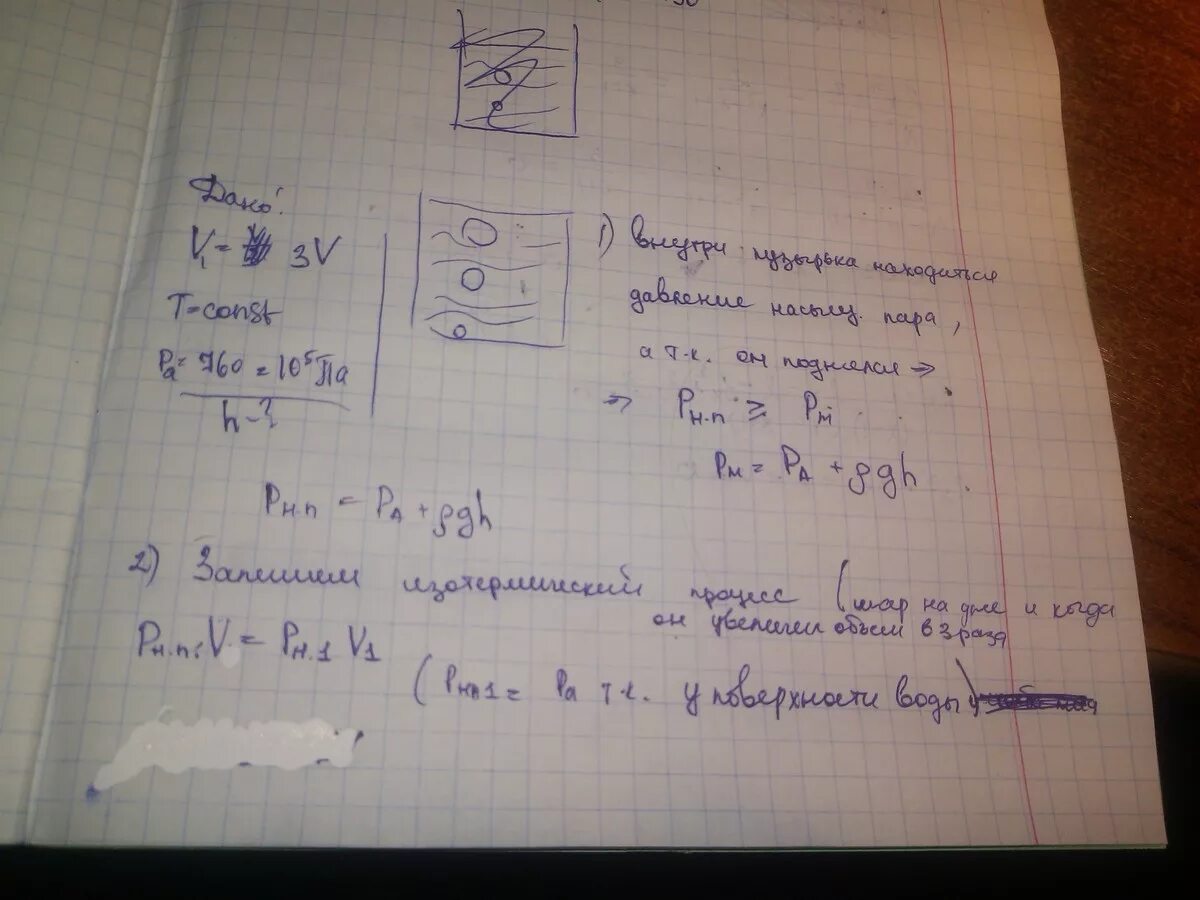 Дано:
V₁ = 3V
T=const
Pa = 760 = 10⁵ Па
h - ?
1) Внутри пузырька находиться
давление насыщ. пара,
а т.к. он поднялся ⇒
⇒ Pн.п ≥ Pм
Pм = PA + ρgh
Pн.п = PA + ρgh
2) Запишем изотермический процесс (шар на дне и когда
он увеличил объем в 3 раза
Pн.п. V = Pн.1 V1
(Pнп1 = Pа т.к. у поверхности воды)